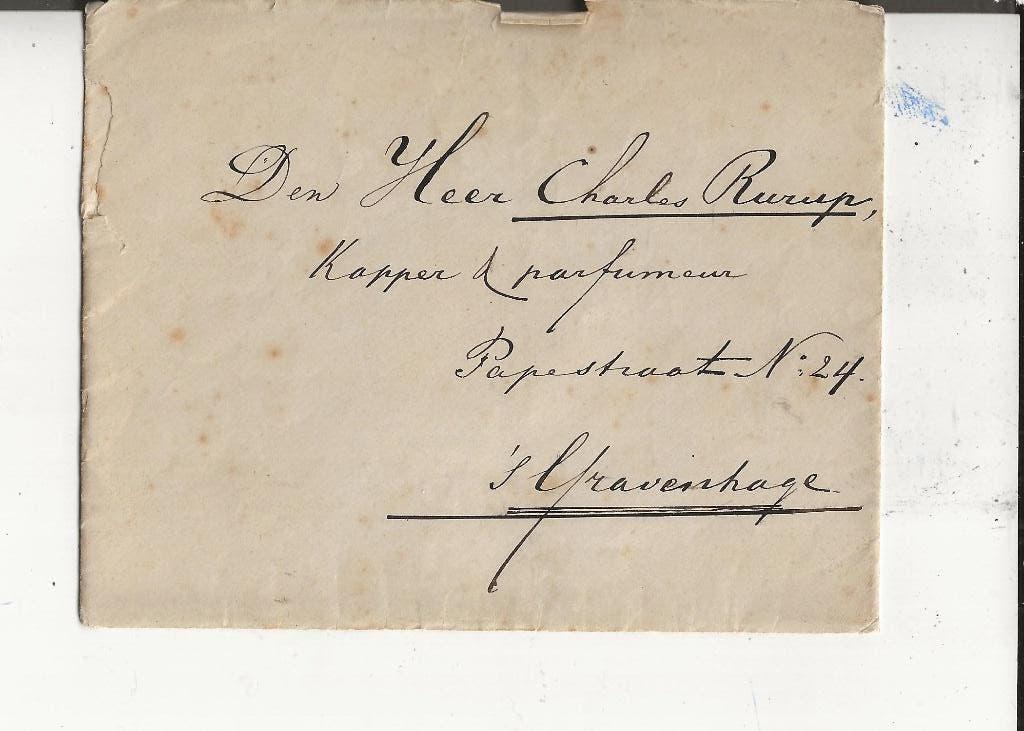 Den Heer Charles Rurup,
Kapper & parfumeur
Papestraat No: 24.
's Gravenhage